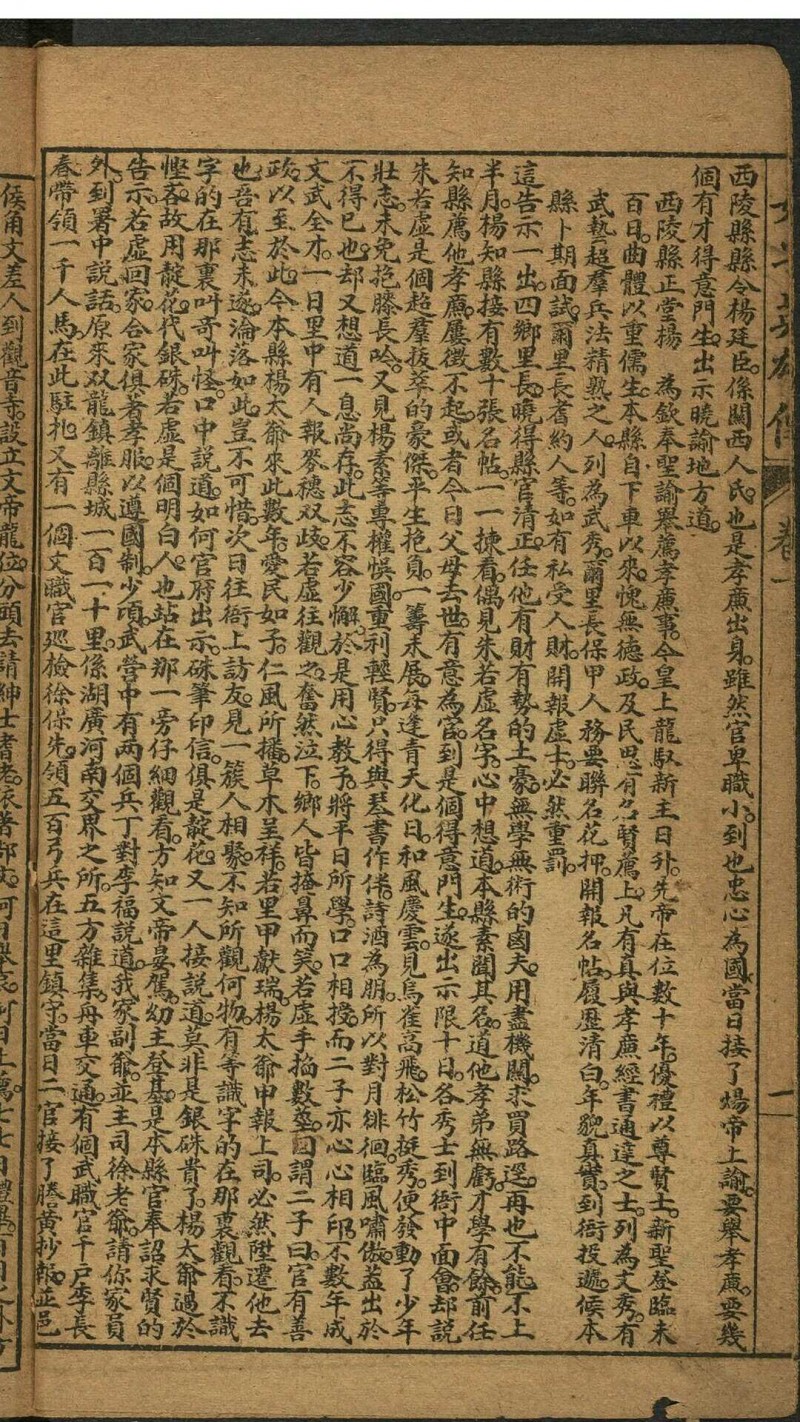 卷一
一
西陵縣縣令楊廷臣。係關西人氏。也是孝廉出身。雖然官卑職小。到也忠心為國。當日接了煬帝上諭。要舉孝廉。要幾
個有才得意門生。出示曉諭地方道。
西陵縣正堂楊 為欽奉聖諭舉薦孝廉事。今皇上龍馭新主日升。先帝在位數十年。優禮以尊賢士。新聖登臨未
百日。曲體以重儒生。本縣自下車以來。愧無德政。及民思有名賢薦上。凡有真與孝廉經書通達之士。列為文秀。有
武藝超羣兵法精熟之人。列為武秀。爾里長保甲人務要聯名花押。開報名帖。履歷清白。年貌真實。到衙投遞。候本
縣卜期面試。爾里長耆約人等。如有私受人財。開報虛士。必然重罰。
這告示一出。四鄉里長。曉得縣官清正。任他有財有勢的土豪。無學無術的鹵夫。用盡機關。求買路逕。再也不能。不上
半月。楊知縣接有數十張名帖。一一揀看。偶見朱若虛名字。心中想道。本縣素聞其名。道他孝弟無虧。才學有餘。前任
知縣薦他孝廉。屢徵不起。或者今日父母去世。有意為官。到是個得意門生。遂出示限十日。各秀士到衙中面會。却說
朱若虛是個超羣拔萃的豪傑。平生抱負。一籌未展。每逢青天化日。和風慶雲。見烏雀高飛。松竹挺秀。便發動了少年
壯志。未免抱膝長吟。又見楊素等專權悞國。重利輕賢。只得與琴書作伴。詩酒為朋。所以對月徘徊。臨風嘯傲。益出於
不得已也。却又想道一息尚存。此志不容少懈。於是用心教子。將平日所學。口口相授。而二子亦心心相印。不數年成
文武全才。一日里中有人報麥穗双歧。若虛往觀之。奮然泣下。鄉人皆掩鼻而笑。若虛手掐數莖。因謂二子曰。官有善
政。以至於此。今本縣楊太爺來此數年。愛民如子。仁風所播。草木呈祥。若里甲獻瑞。楊太爺申報上司。必然陞遷他去
也。吾有志未遂。淪落如此。豈不可惜。次日往衙上訪友。見一簇人相聚。不知所觀何物。有等識字的在那裏觀看。不識
字的在那裏叫奇叫怪。口中說道。如何官府出示。硃筆印信。俱是靛花。又一人接說道。莫非是銀硃貴了。楊太爺過於
慳吝。故用靛花代銀硃。若虛是個明白人。也站在那一旁仔細觀看。方知文帝晏駕。幼主登基。是本縣官奉詔求賢的
告示。若虛回家。合家俱著孝服。以遵國制。少頃。武營中有兩個兵丁。對李福說道。我家副爺。並主司徐老爺。請你家員
外。到署中說話。原來双龍鎮離縣城一百一十里。係湖廣河南交界之所。五方雜集。舟車交通。有個武職官千戶李長
春。帶領一千人馬。在此駐扎。又有一個文職官廵檢徐保先。領五百弓兵。在這里鎮守。當日二官接了謄黃抄報。並邑
侯角文差人到觀音寺。設立文帝龍位。分頭去請紳士耆老。